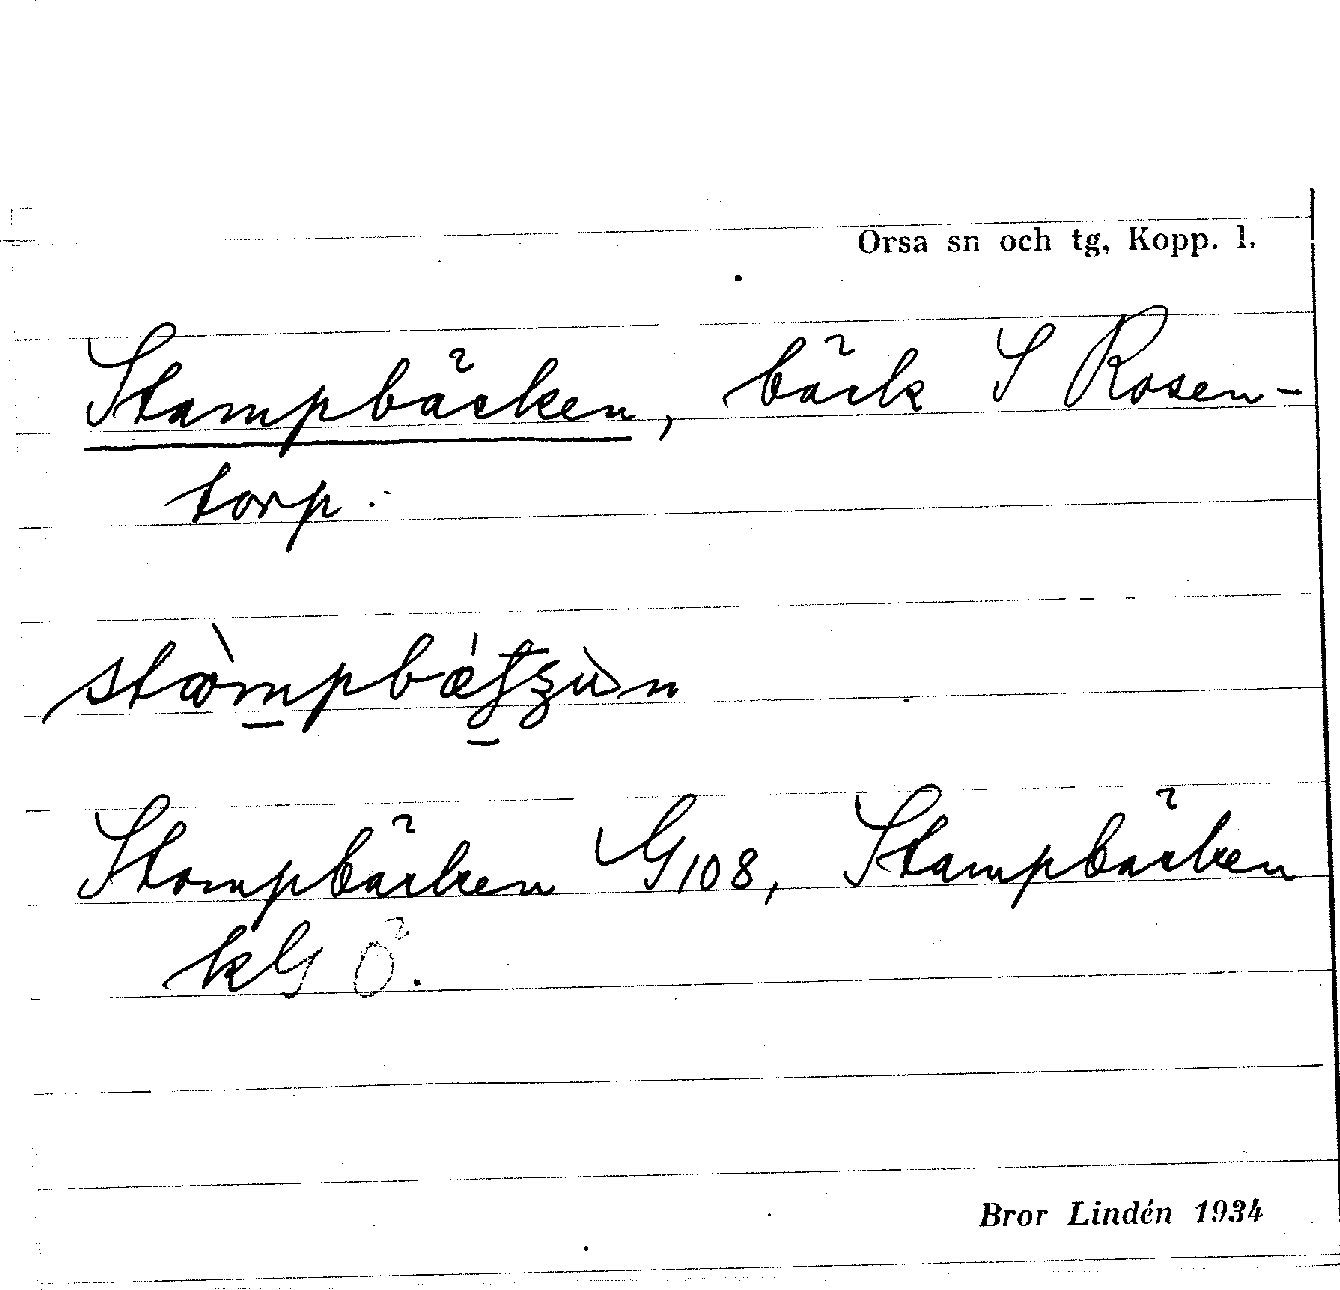 Orsa sn och tg, Kopp. l.
Stampbäcken, bäck S Rosen-
torp.
Stompbäcken G108, Stampbäcken
kG Ö.
Bror Lindén 1934